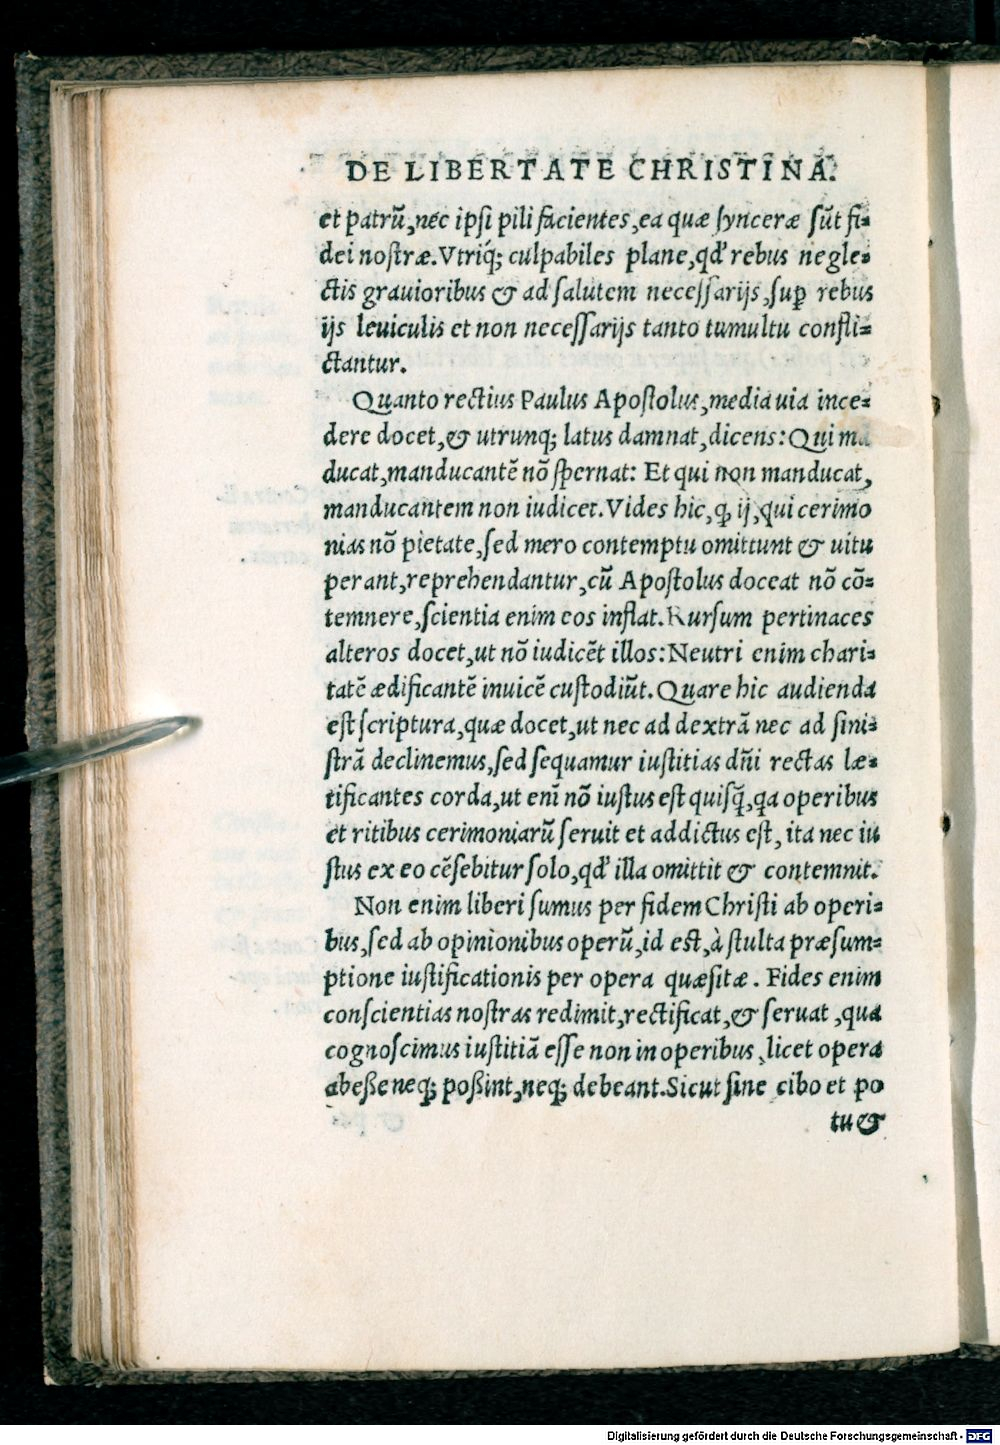 DE LIBERTATE CHRISTINA.
et patrũ, nec ipſi pili facientes, ea quæ ſynceræ ſũt fi-
dei noſtræ. Vtriq́; culpabiles plane, qđ rebus negle-
ctis grauioribus & ad ſalutem neceſſarijs, ſuꝑ rebus
ijs leuiculis et non neceſſarijs tanto tumultu confli-
ctantur.
Quanto rectius Paulus Apoſtolus, media uia ince-
dere docet, & utrunq; latus damnat, dicens: Qui mā
ducat, manducantẽ nõ ſpernat: Et qui non manducat,
manducantem non iudicet. Vides hic, ꝙ ij, qui cerimo
nias nõ pietate, ſed mero contemptu omittunt & uitu
perant, reprehendantur, cũ Apoſtolus doceat nõ cõ-
temnere, ſcientia enim eos inflat. Rurſum pertinaces
alteros docet, ut nõ iudicẽt illos: Neutri enim chari-
tatẽ ædificantẽ inuicẽ cuſtodiũt. Quare hic audienda
eſt ſcriptura, quæ docet, ut nec ad dextrã nec ad ſini-
ſtrã declinemus, ſed ſequamur iuſtitias dñi rectas læ-
tificantes corda, ut enĩ nõ iuſtus eſt quiſq̃, qa operibus
et ritibus cerimoniarũ ſeruit et addictus eſt, ita nec iu
ſtus ex eo cẽſebitur ſolo, qđ illa omittit & contemnit.
Non enim liberi ſumus per fidem Chriſti ab operi-
bus, ſed ab opinionibus operũ, id eſt, à ſtulta præſum-
ptione iuſtificationis per opera quæſitæ. Fides enim
conſcientias noſtras redimit, rectificat, & ſeruat, qua
cognoſcimus iuſtitiã eſſe non in operibus, licet opera
abeße neq; poßint, neq; debeant. Sicut ſine cibo et po
tu &
Digitalisierung gefördert durch die Deutsche Forschungsgemeinschaft - DFG